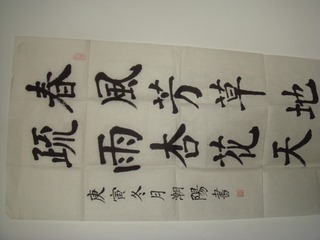 春風芳草地
疏雨杏花天
庚寅冬月潮陽書